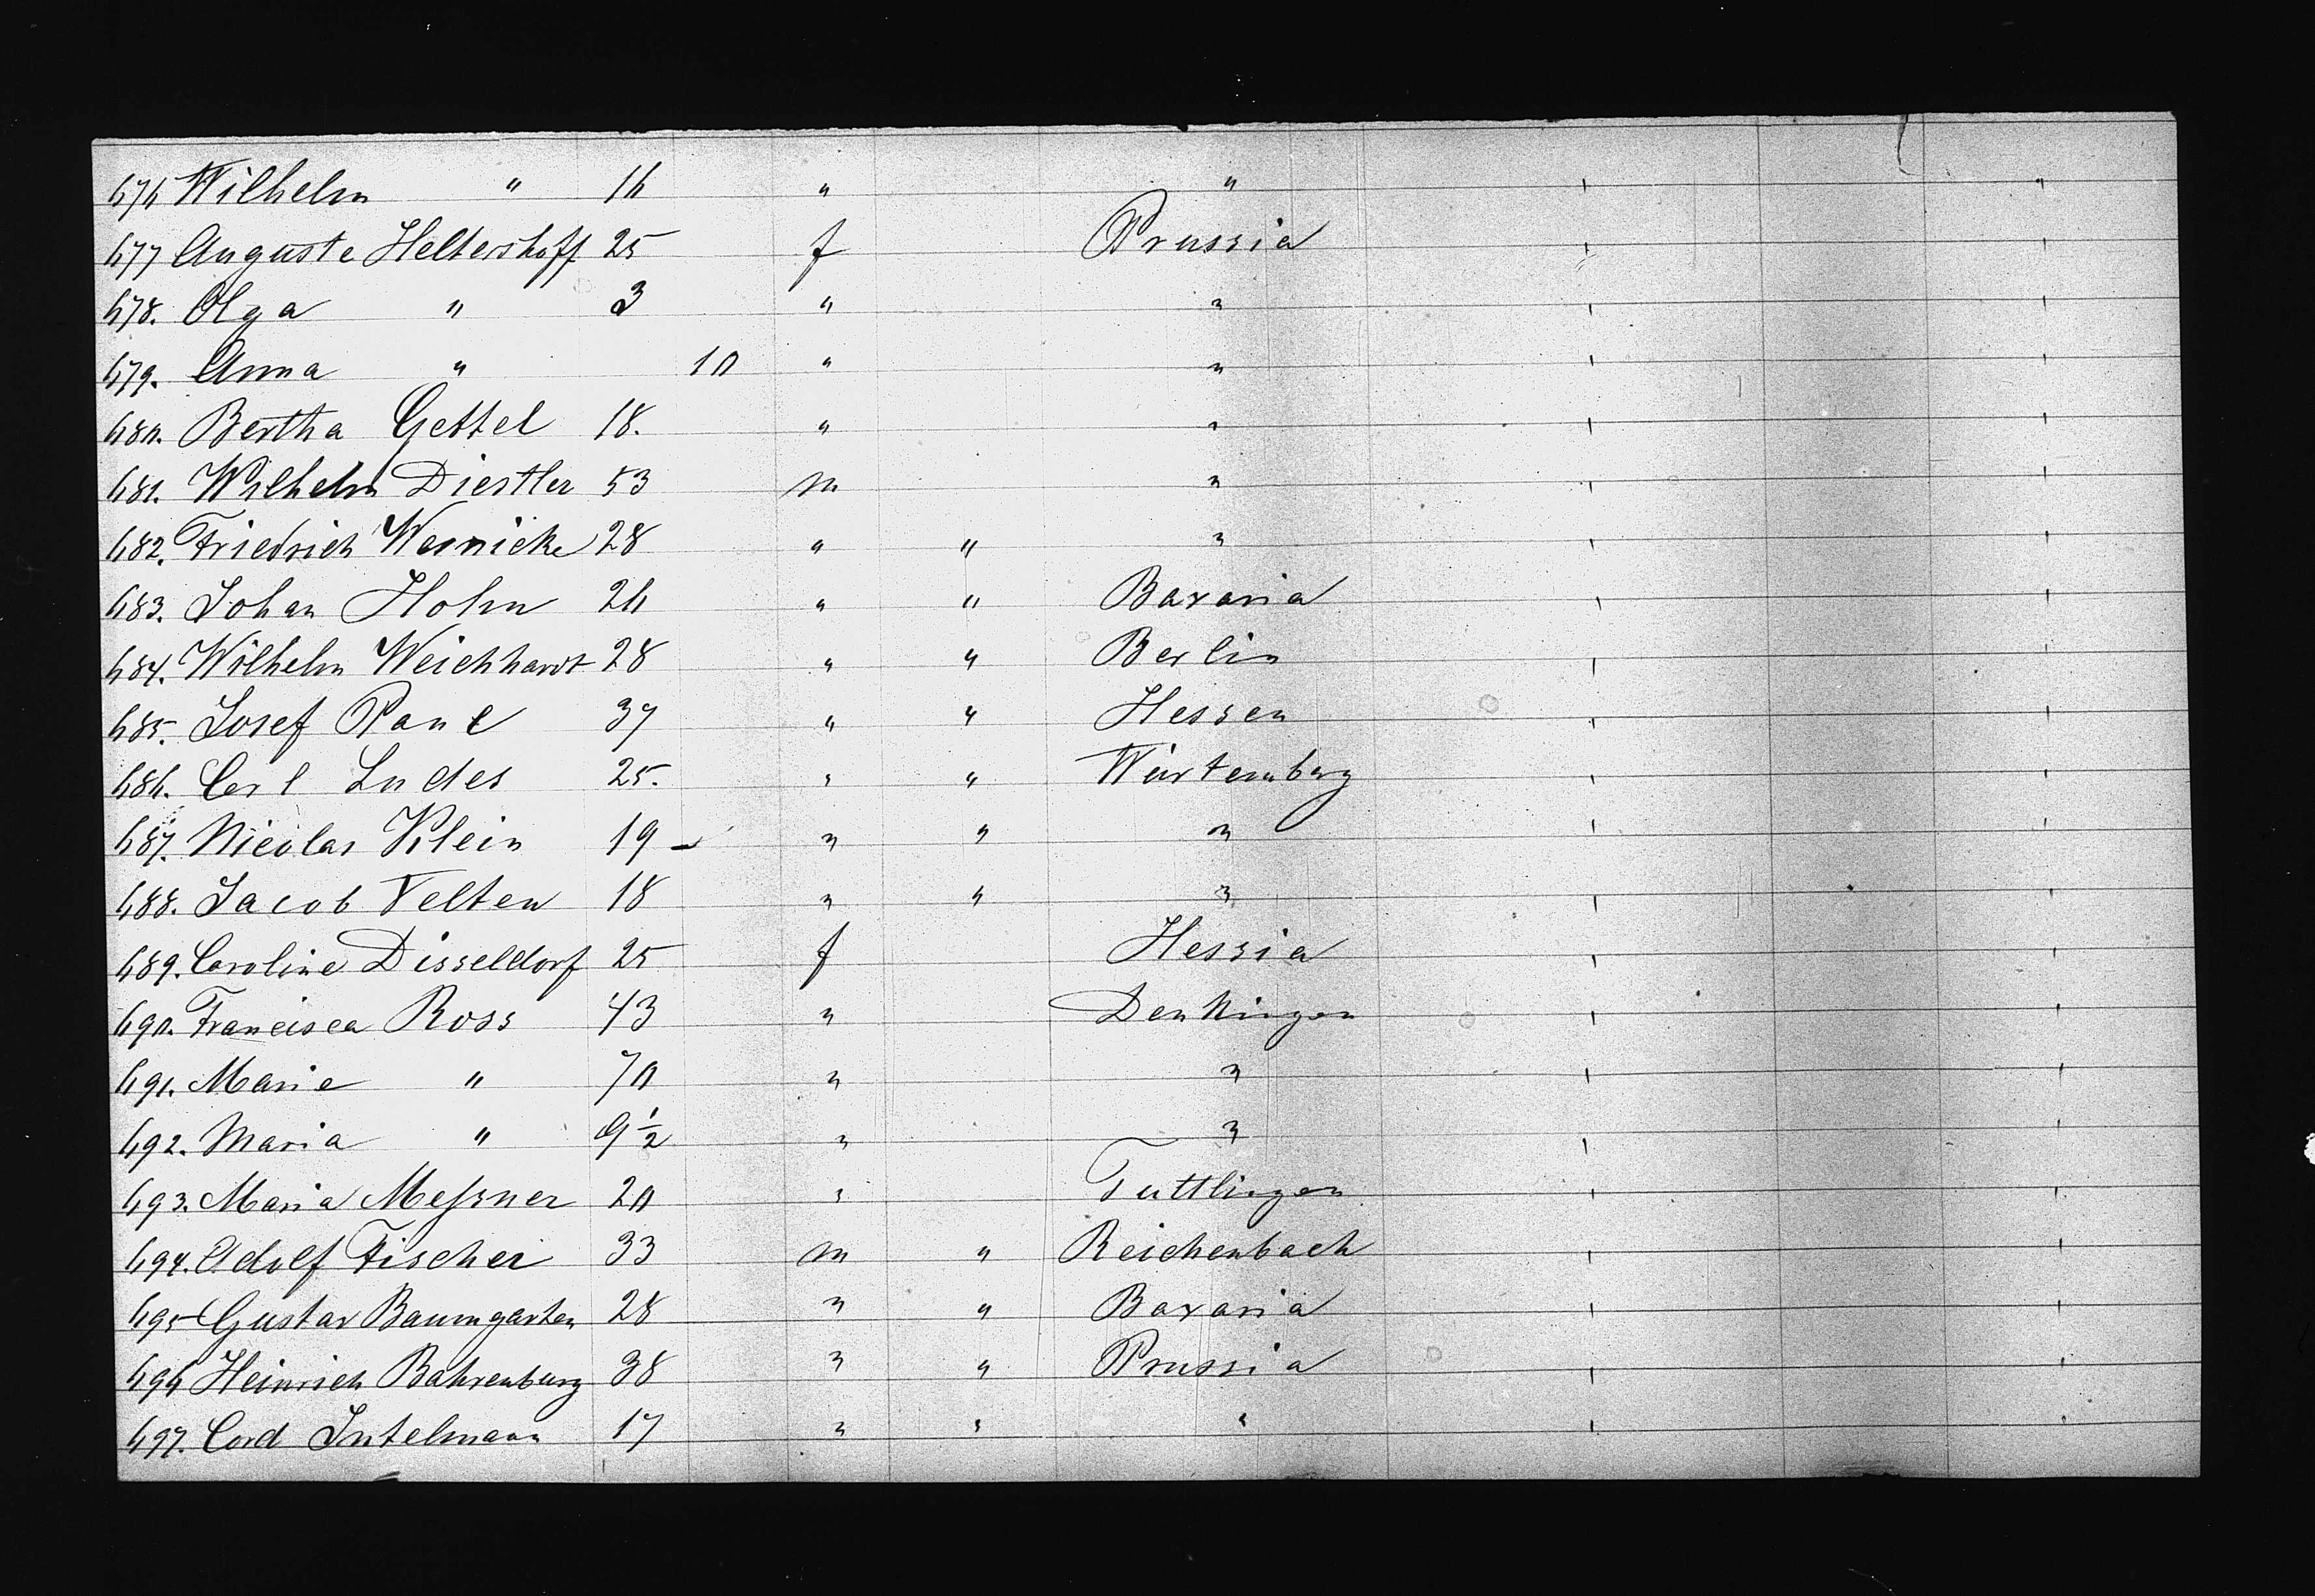 676 Wilhelm " 16 " "
677 Auguste Heltershoff 25 f Prussia
678. Olga " 3 " "
679. Anna " 10 " "
680. Bertha Gettel 18. " "
681. Wilhelm Diestler 53 m "
682. Friedrich Wernicke 28 " " "
683. Johan Hohn 26 " " Bavaria
684. Wilhelm Weichhardt 28 " " Berlin
685. Josef Paul 37 " " Hessen
686. Carl Ludes 25. " " Würtemberg
687. Nicolas Klein 19 " " "
688. Jacob Velten 18 " " "
689. Caroline Disseldorf 25 f Hessia
690. Francisca Ross 43 " Denkingen
691. Marie " 70 " "
692. Maria " 9½ " "
693. Maria Messner 20 " Tuttlingen
694. Adolf Fischer 33 m " Reichenbach
695 Gustav Baumgarten 28 " " Bavaria
696 Heinrich Bahrenburg 38 " " Prussia
697. Cord Intelmann 17 " " "